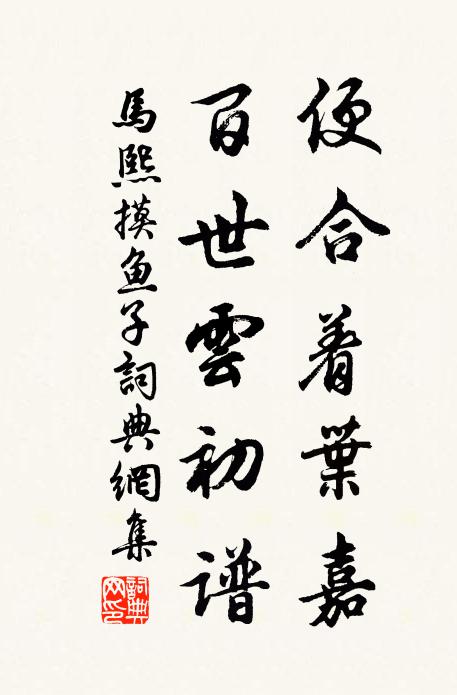 便合着葉嘉
百世雲初譜
馬熙摸魚子詞典網集
詞典网印